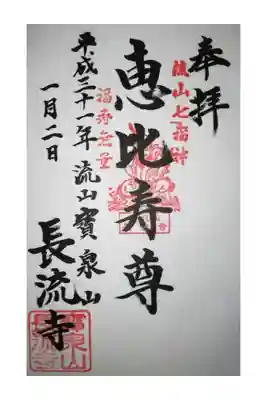 奉拝
流山七福神
恵比寿尊
福寿無量
流山寳泉山
長流寺
平成三十一年
一月二日